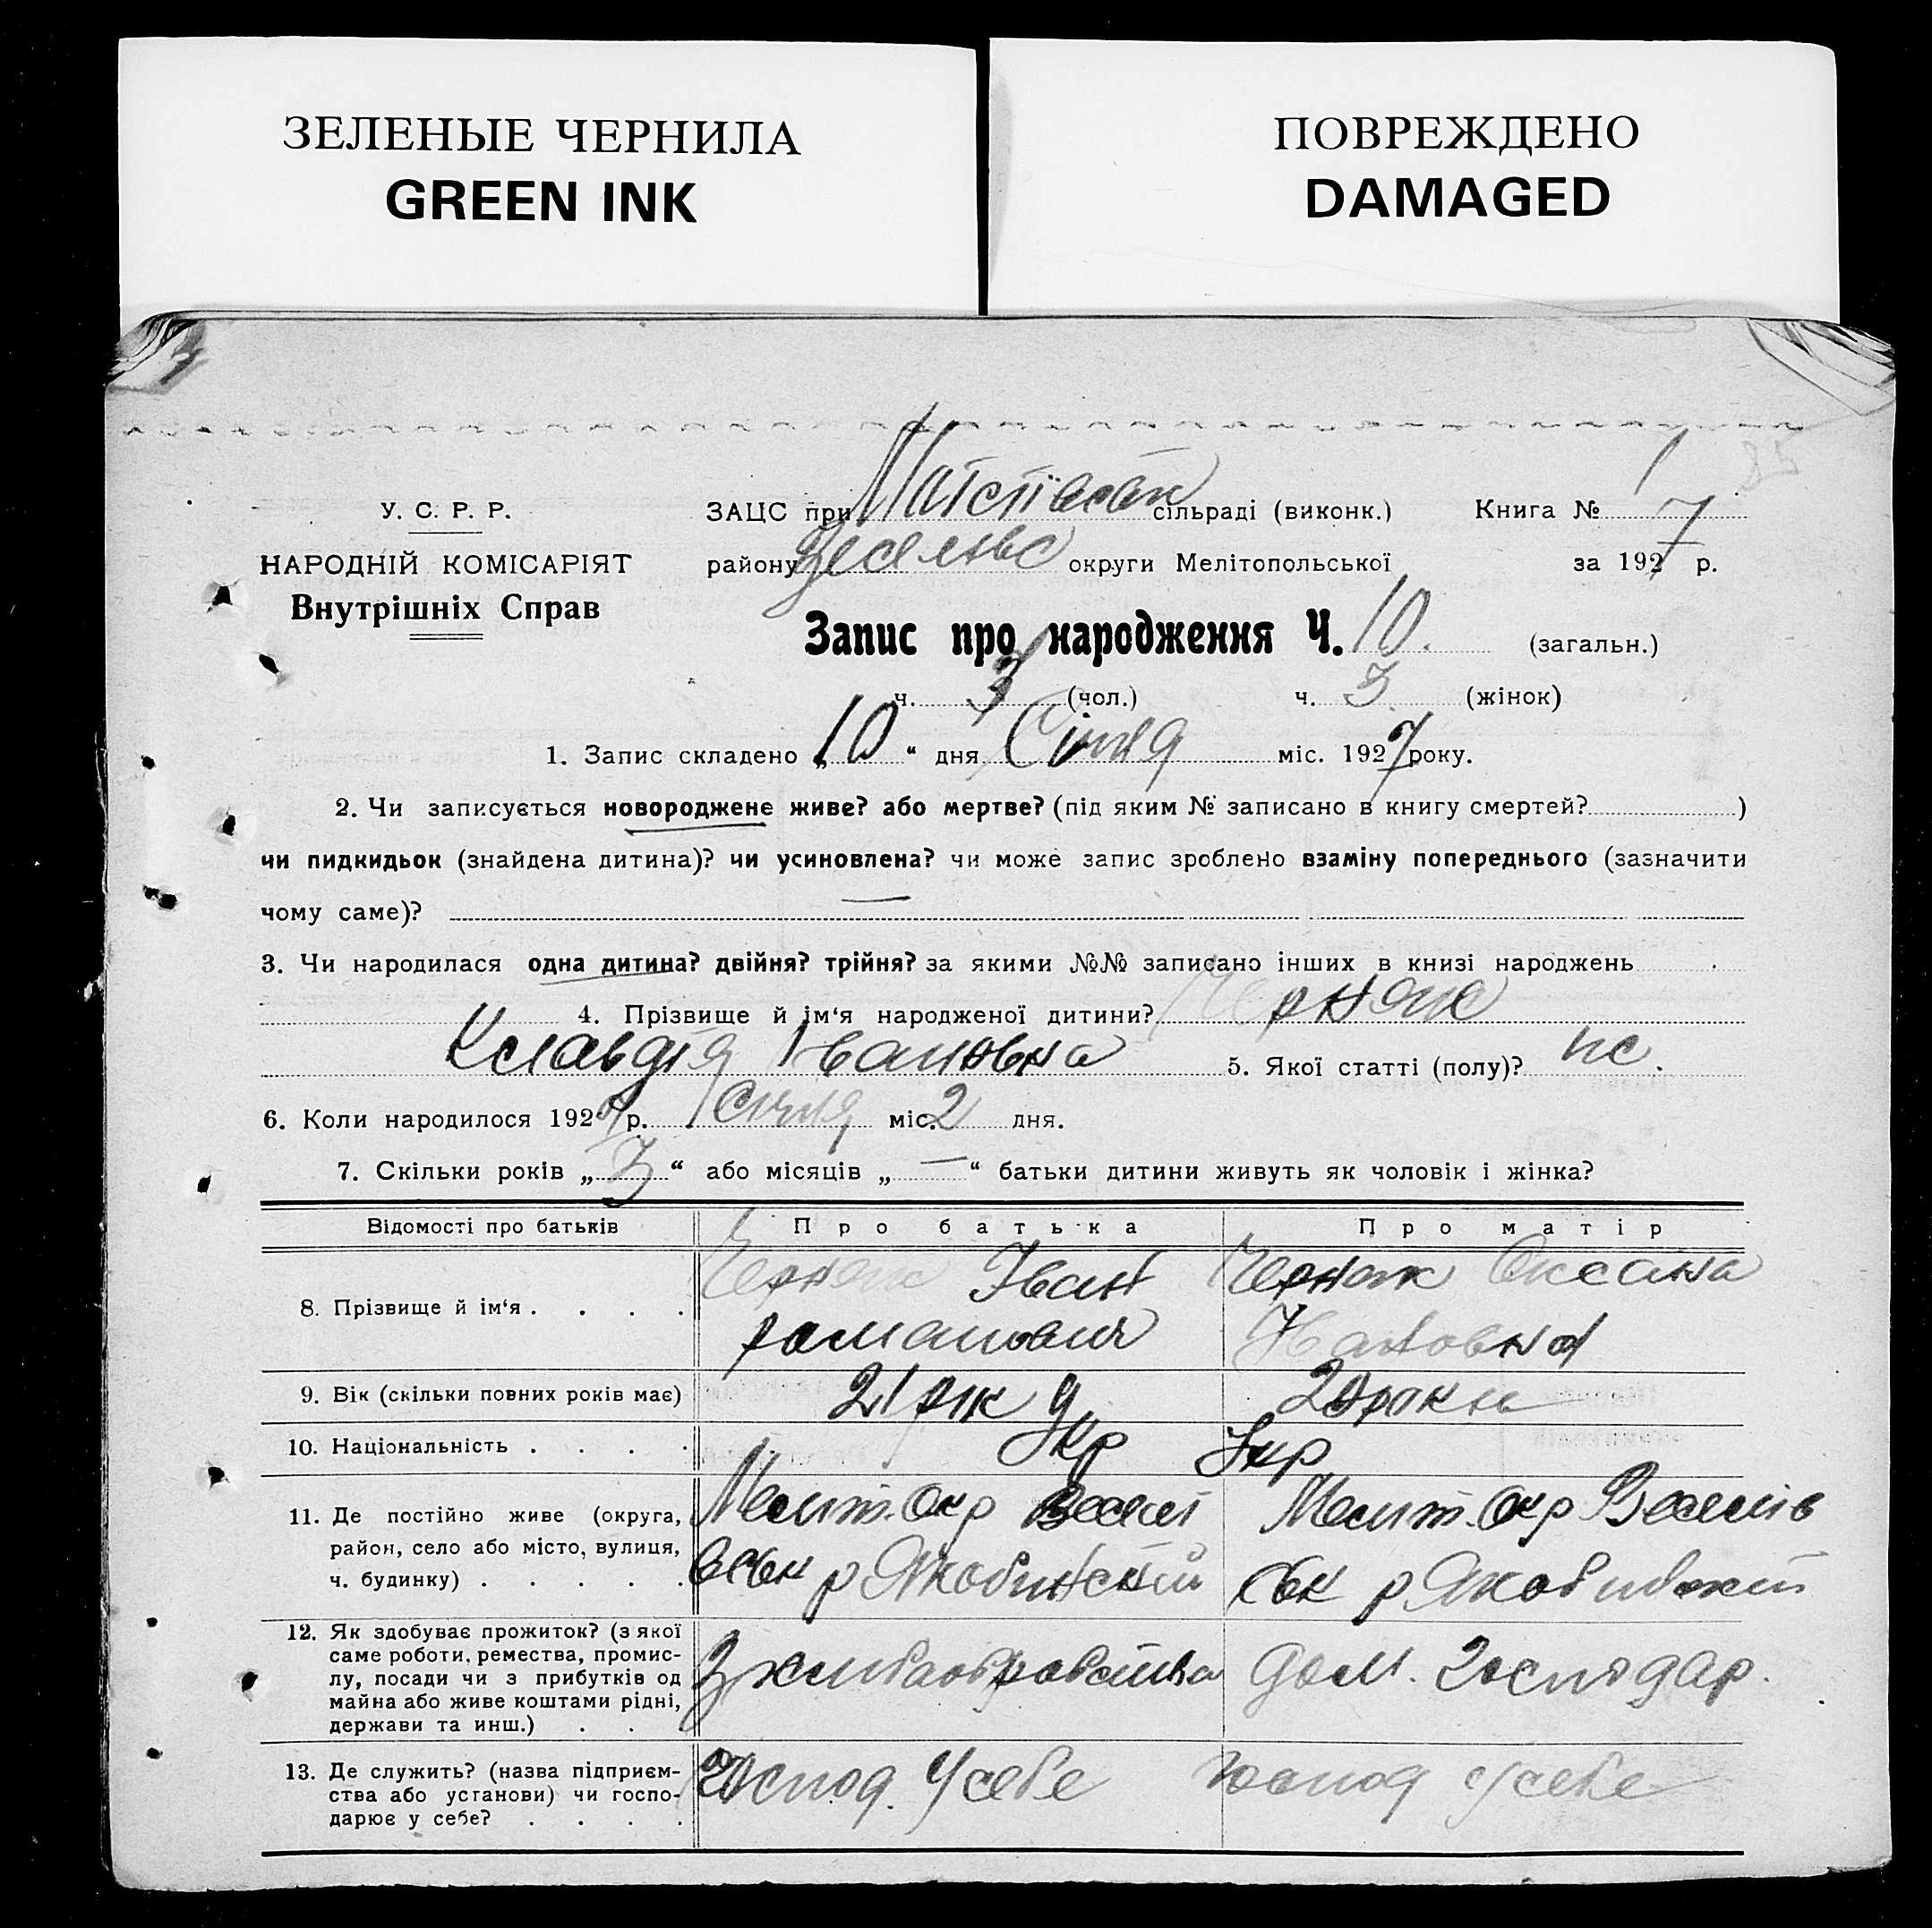 ЗЕЛЕНЫЕ ЧЕРНИЛА
GREEN INK
ПОВРЕЖДЕНО
DAMAGED
У. С. Р. Р.
НАРОДНІЙ КОМІСАРІЯТ
Внутрішніх Справ
ЗАЦС при сільраді (виконк.) Книга № 1
району округи Мелітопольської за 1927 р.
Запис про народження Ч. 10. (загальн.)
ч. 7 (чол.) ч. 3 (жінок)
1. Запис складено „10“ дня Січня міс. 1927 року.
2. Чи записується новороджене живе? або мертве? (під яким № записано в книгу смертей? )
чи пидкидьок (знайдена дитина)? чи усиновлена? чи може запис зроблено взаміну попереднього (зазначити
чому саме)? —
3. Чи народилася одна дитина? двійня? трійня? за якими №№ записано інших в книзі народжень
4. Прізвище й ім‘я народженої дитини? Черняк
Клавдія Івановна 5. Якої статті (полу)? ж.
6. Коли народилося 1927 р. Січня міс. 2 дня.
7. Скільки років „3“ або місяців „—“ батьки дитини живуть як чоловік і жінка?
Відомості про батьків Про батька Про матір
8. Прізвище й ім‘я . . . . Черняк Іван Черняк Оксана
9. Вік (скільки повних років має) 21 рік 20 роки
10. Національність . . . . Укр Укр
11. Де постійно живе (округа, Меліт. Окр Веселі Меліт. Окр Веселів
район, село або місто, вулиця,
ч. будинку) . . . . . вськ р ськ р
12. Як здобуває прожиток? (з якої
саме роботи, ремества, промис-
лу, посади чи з прибутків од З хлибаобробства дом. господар.
майна або живе коштами рідні,
держави та инш.) . . .
13. Де служить? (назва підприєм-
ства або установи) чи госпо- Господ. У себе господ у себе
дарює у себе? . . . .